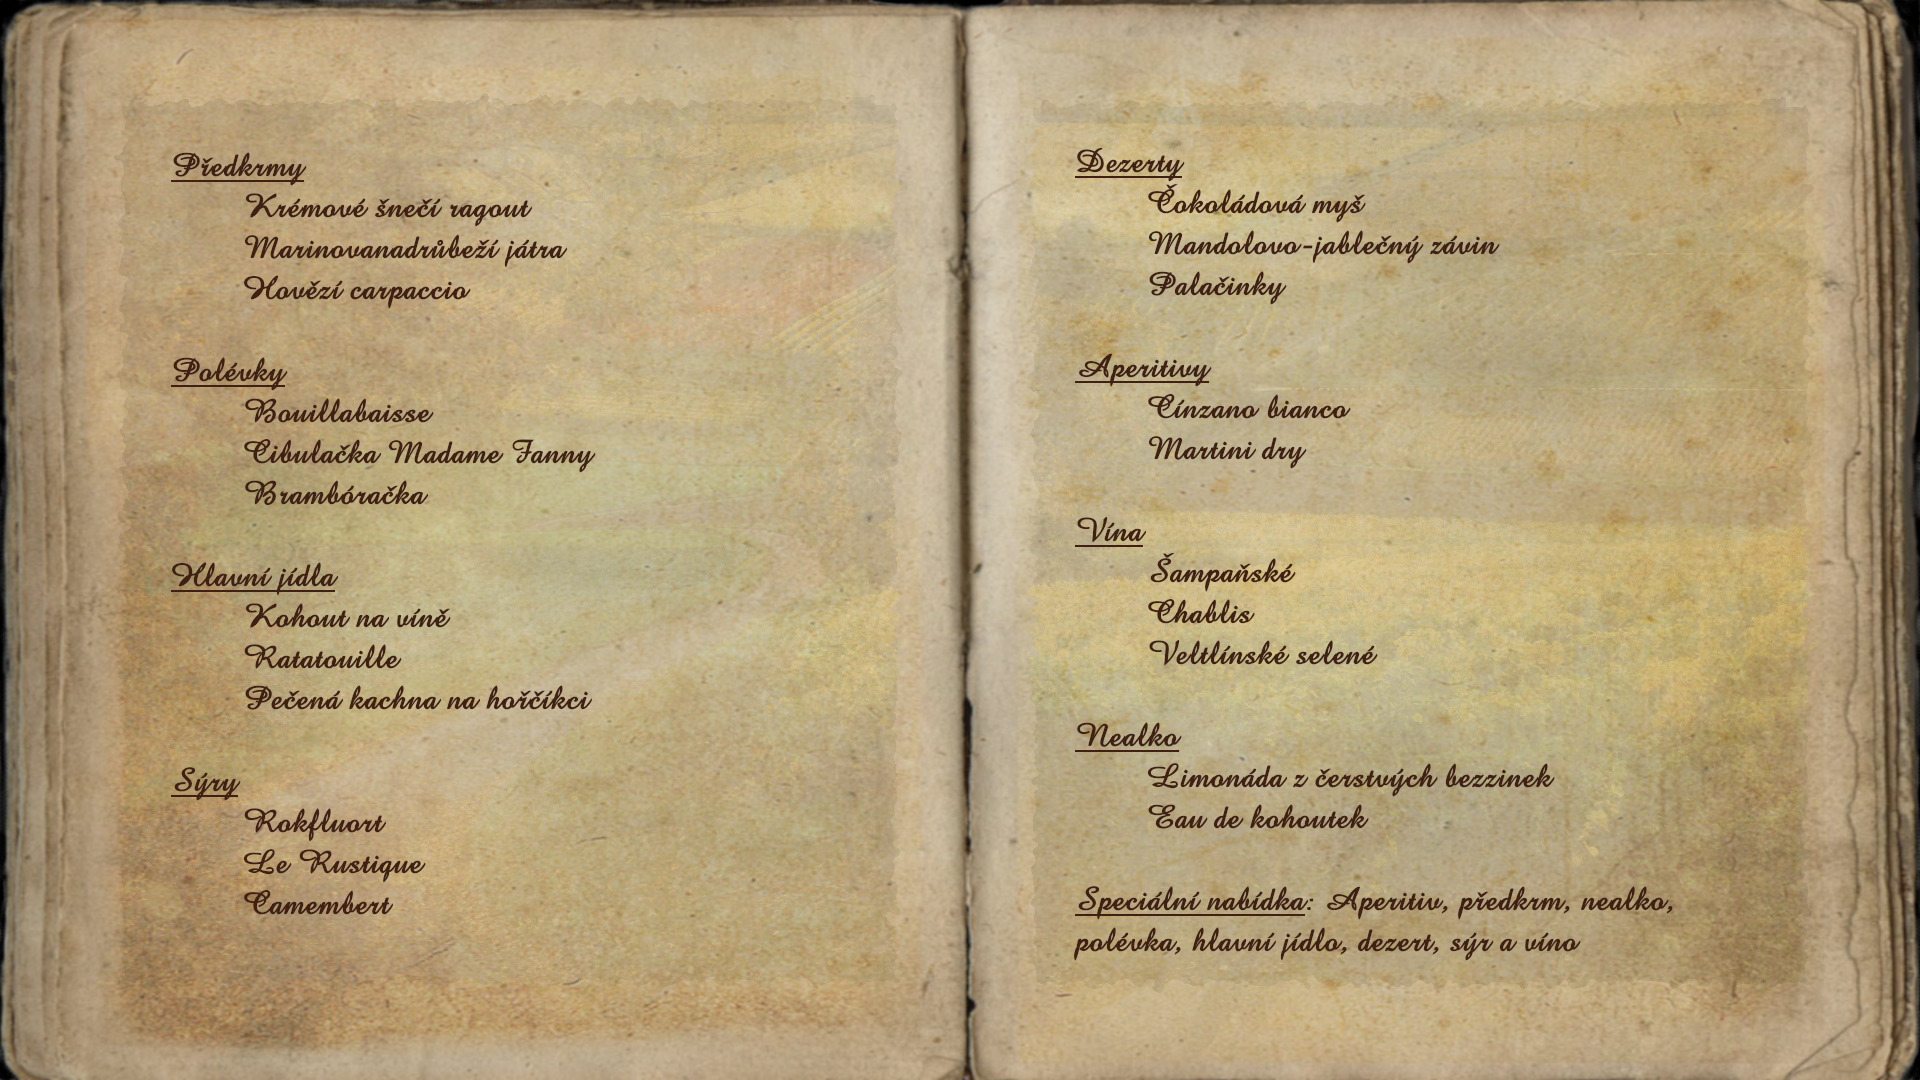 Předkrmy
Krémové šnečí ragout
Marinovanadrůbeží játra
Hovězí carpaccio
Polévky
Bouillabaisse
Cibulačka Madame Fanny
Brambóračka
Hlavní jídla
Kohout na víně
Ratatouille
Pečená kachna na hořčíkci
Sýry
Rokfluort
Le Rustique
Camembert
Dezerty
Čokoládová myš
Mandolovo-jablečný závin
Palačinky
Aperitivy
Cínzano bianco
Martini dry
Vína
Šampaňské
Chablis
Veltlínské selené
Nealko
Limonáda z čerstvých bezzinek
Eau de kohoutek
Speciální nabídka: Aperitiv, předkrm, nealko,
polévka, hlavní jídlo, dezert, sýr a víno